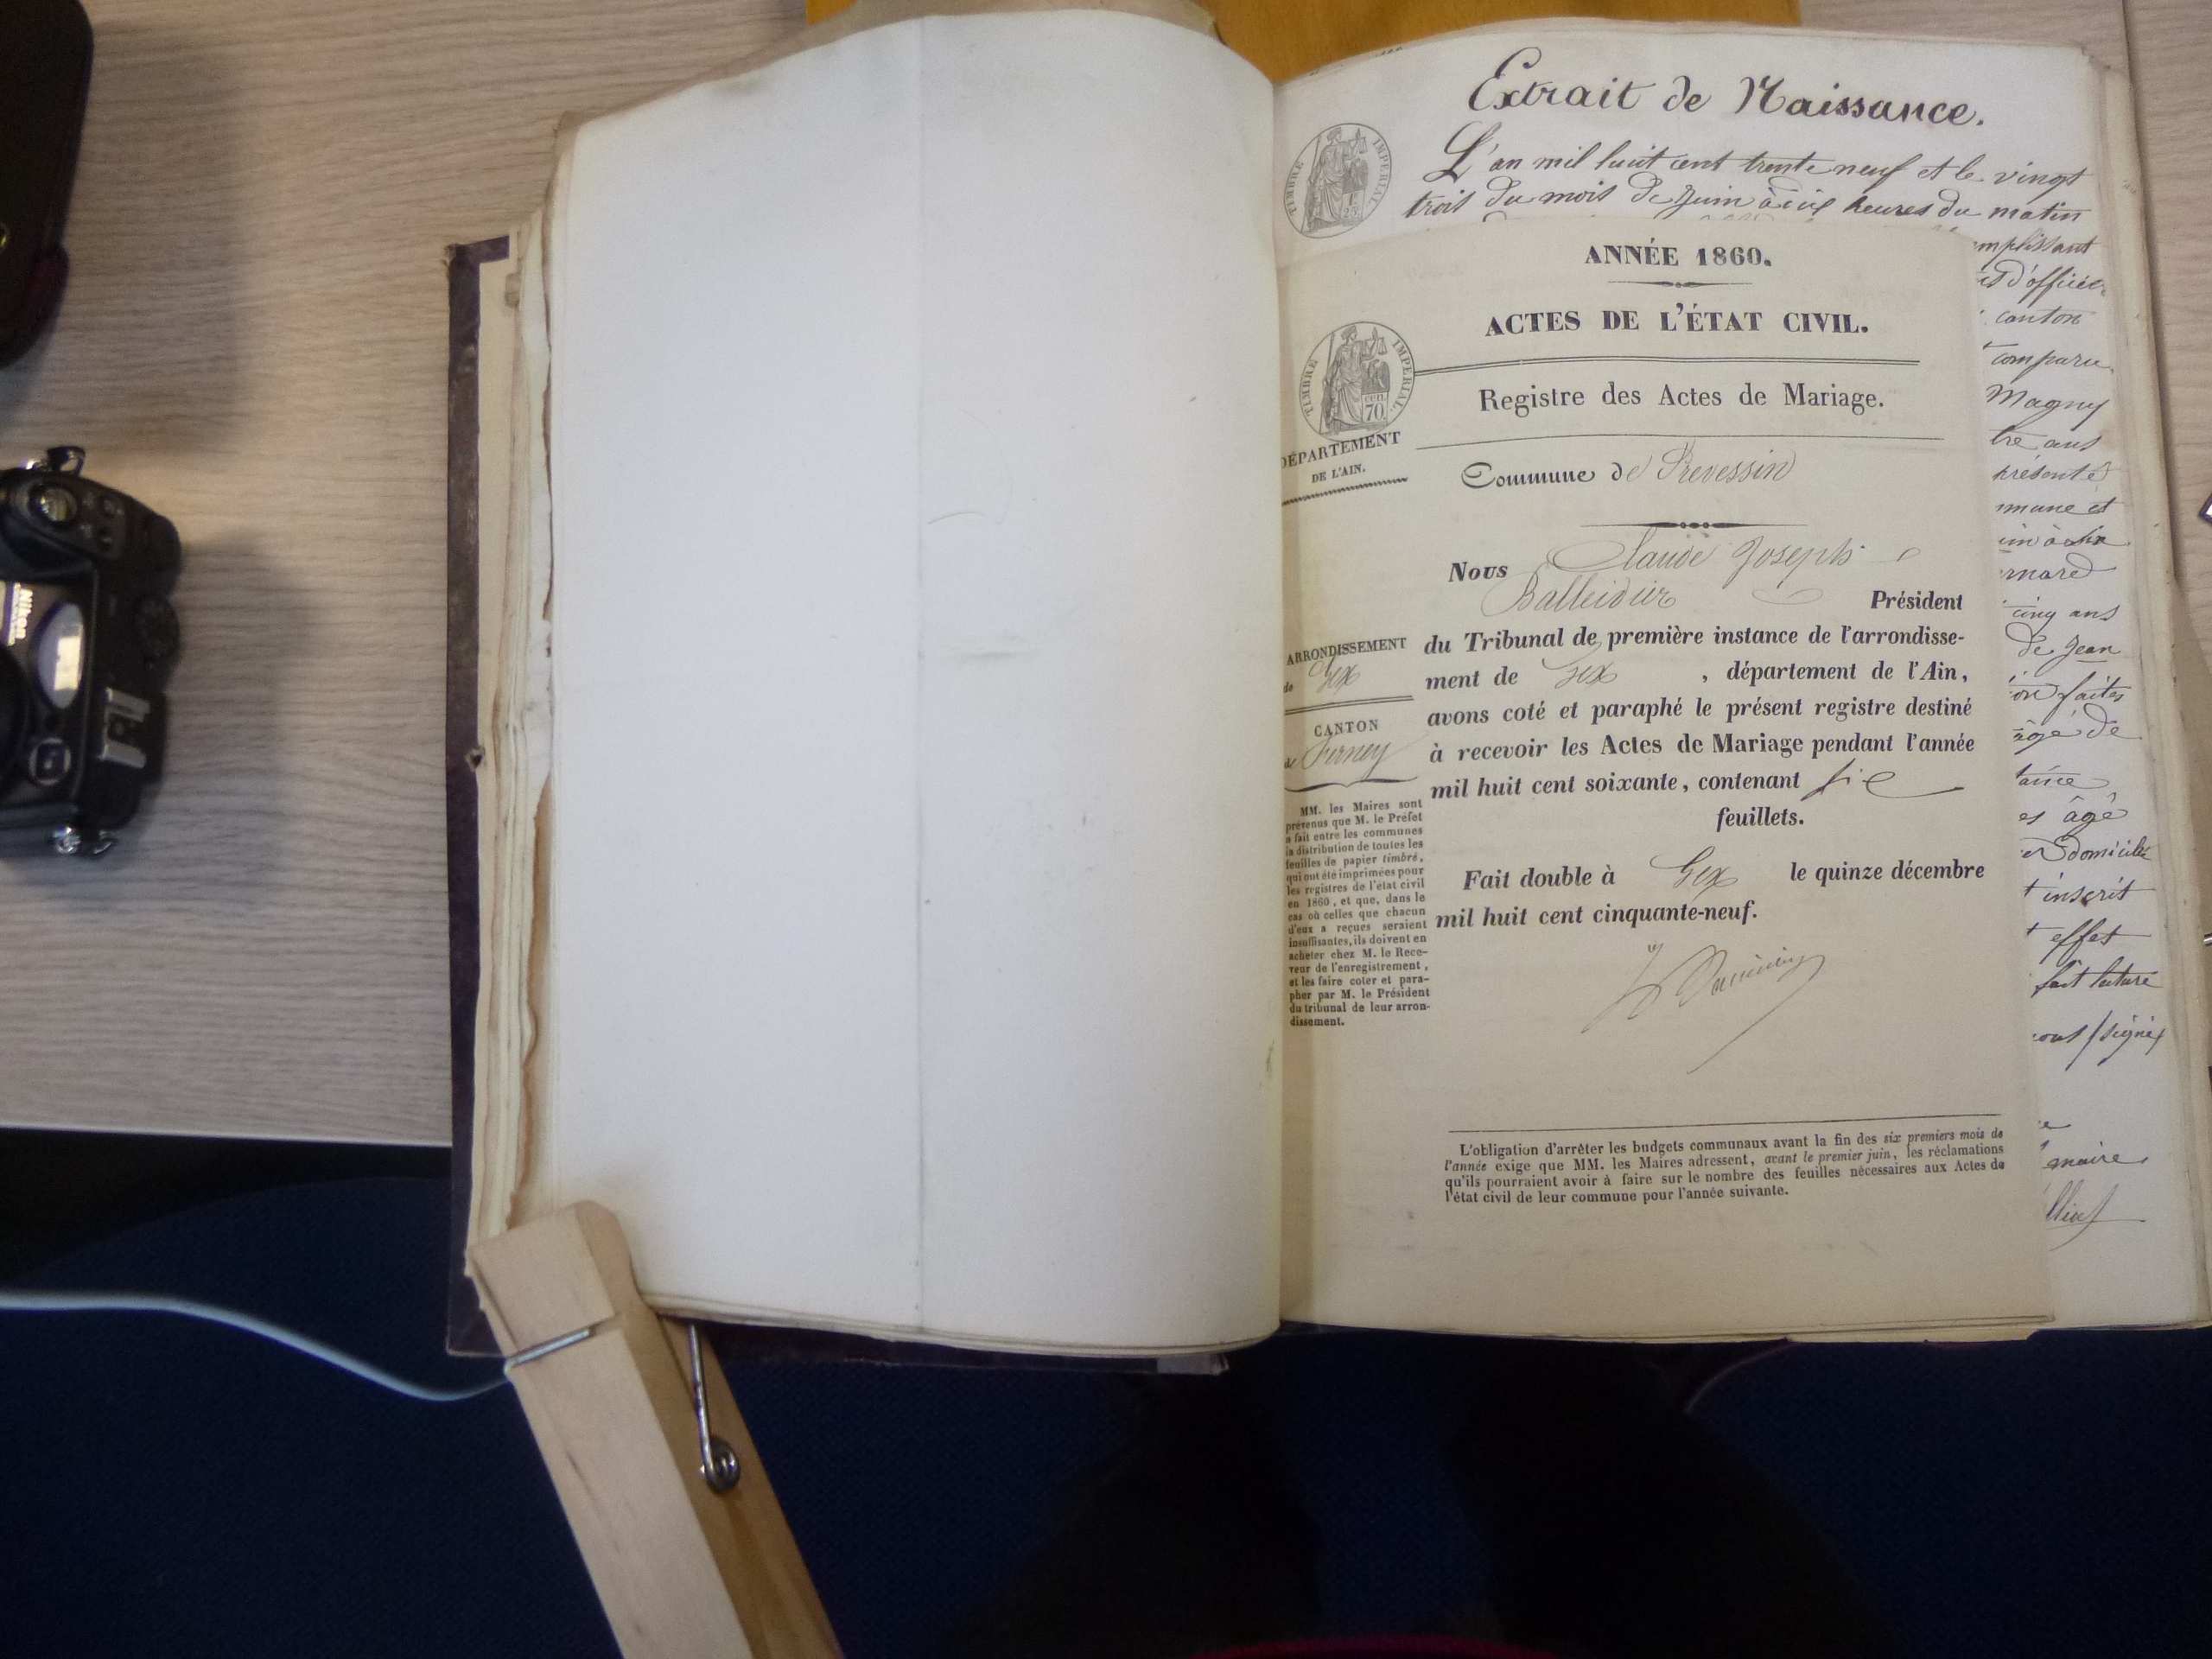 Extrait de Naissance.
L'an mil huit cent trente neuf et le vingt
trois du mois de Juin à dix heures du matin
TIMBRE IMPÉRIAL
ANNÉE 1860.
ACTES DE L'ÉTAT CIVIL.
TIMBRE IMPÉRIAL.
cen. 70
Registre des Actes de Mariage.
DÉPARTEMENT
DE L'AIN.
Commune de Prevessin
Nous Claude Joseph
Balleidier Président
du Tribunal de première instance de l'arrondisse-
ment de Gex, département de l'Ain,
avons coté et paraphé le présent registre destiné
à recevoir les Actes de Mariage pendant l'année
mil huit cent soixante, contenant six
feuillets.
Fait double à Gex le quinze décembre
mil huit cent cinquante-neuf.
ARRONDISSEMENT
de Gex
CANTON
de Ferney
MM. les Maires sont
prévenus que M. le Préfet
a fait entre les communes
la distribution de toutes les
feuilles de papier timbré,
qui ont été imprimées pour
les registres de l'état civil
en 1860, et que, dans le
cas où celles que chacun
d'eux a reçues seraient
insuffisantes, ils doivent en
acheter chez M. le Rece-
veur de l'enregistrement,
et les faire coter et para-
pher par M. le Président
du tribunal de leur arron-
dissement.
L'obligation d'arrêter les budgets communaux avant la fin des six premiers mois de
l'année exige que MM. les Maires adressent, avant le premier juin, les réclamations
qu'ils pourraient avoir à faire sur le nombre des feuilles nécessaires aux Actes de
l'état civil de leur commune pour l'année suivante.
mplissant
d'officier
canton
comparu
Magny
tre ans
présenté
mmune et
rnard
cinq ans
de Jean
on faites
âgé de
taire
es âgé
domicilié
t inscrit
t effet
fait lecture
signé
maire
Nikon